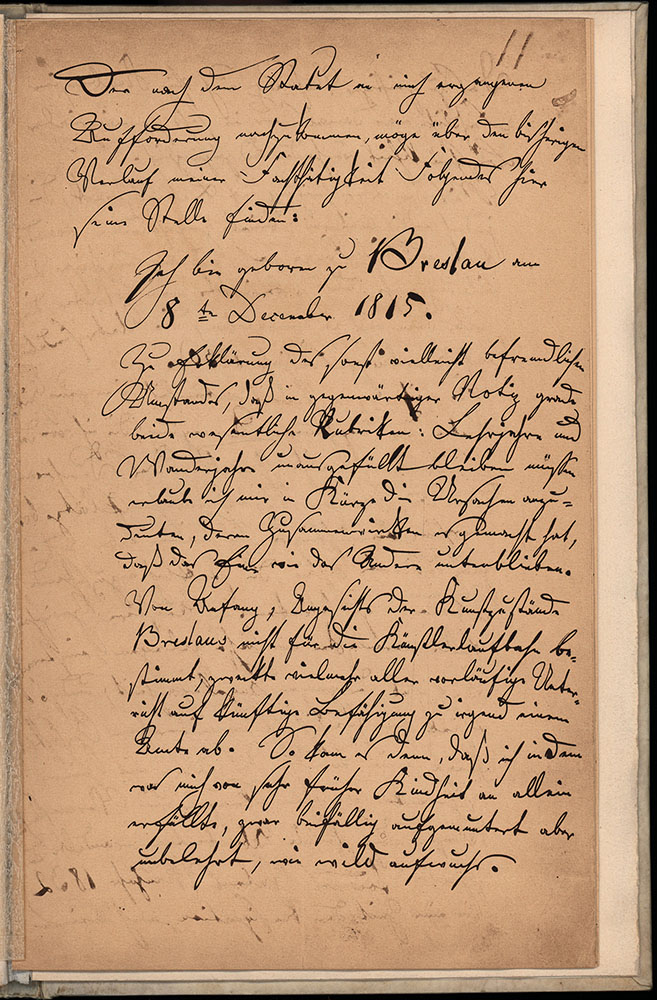 11
Der nach dem Statut an mich ergangenen
Aufforderung nachzukommen, möge über den bisherigen
Verlauf meiner Fachthätigkeit Folgendes hier
seine Stelle finden:
Ich bin geboren zu Breslau am
8te December 1815.
Zu Erklärung des sonst vielleicht befremdlichen
Umstandes, daß in gegenwärtiger Notiz grade
beide wesentliche Rubriken: Lehrjahre und
Wanderjahre unausgefüllt bleiben müssen
erlaube ich mir in Kürze die Ursachen anzu=
deuten, deren Zusammenwirken es gemacht hat,
daß das Eine wie das Andere unterblieben.
Von Anfang, Angesichts der Kunstzustände
Breslaus nicht für die Künstlerlaufbahn be=
stimmt, zweckte vielmehr aller vorläufige Unter=
richt auf künftige Befähigung zu irgend einem
Amte ab. So kam es denn, daß ich in dem
was mich von sehr früher Kindheit an allein
erfüllte, zwar beifällig aufgemuntert aber
unbelehrt, wie wild aufwuchs.